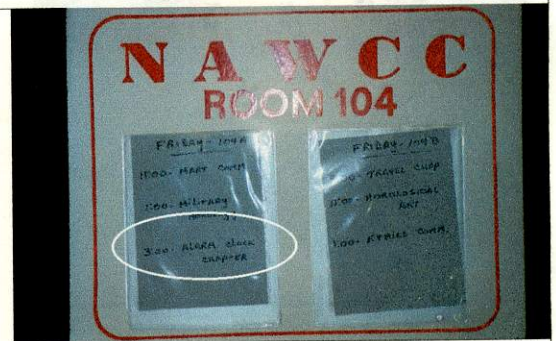 NAWCC
ROOM 104
FRIDAY - 104 A
MART COMM
1:00 - MILITARY
3:00 - ALARM CLOCK
CHAPTER
FRIDAY - 104 B
TRAVEL CHAP
HOROLOGICAL
ART
1:00 - ETHICS COMM.